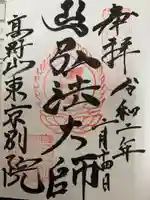 奉拝
令和二年
二月十四日
弘法大師
高野山東京別院